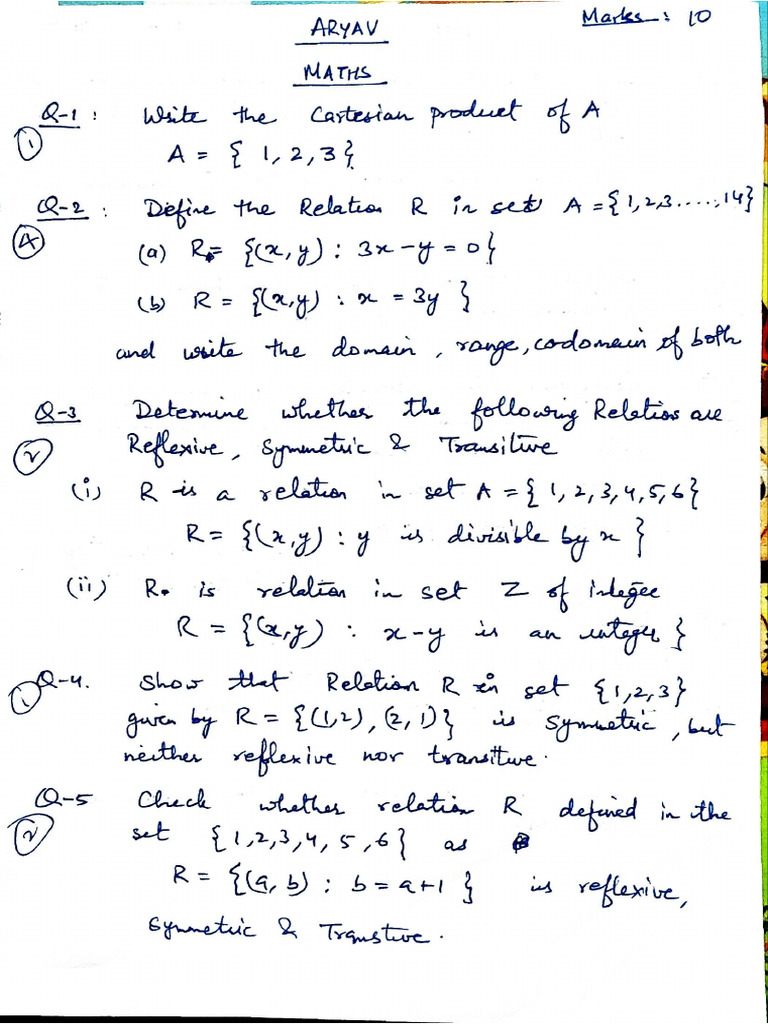 ARYAV
Marks: 10
MATHS
Q-1: Write the Cartesian product of A
① A = { 1, 2, 3 }
Q-2: Define the Relation R in set A = {1,2,3.....,14}
④ (a) R = {(x,y) : 3x-y = 0}
(b) R = {(x,y) : x = 3y }
and write the domain, range, codomain of both
Q-3 Determine whether the following Relation are
② Reflexive, Symmetric & Transitive
(i) R is a relation in set A = { 1, 2, 3, 4, 5, 6}
R = {(x,y) : y is divisible by x }
(ii) R is relation in set Z of integer
R = {(x,y) : x-y is an integer }
① Q-4. Show that Relation R in set {1,2,3}
given by R = {(1,2), (2,1)} is Symmetric, but
neither reflexive nor transitive.
Q-5 Check whether relation R defined in the
② set {1,2,3,4,5,6} as
R = {(a, b) : b = a+1 } is reflexive,
Symmetric & Transtive.